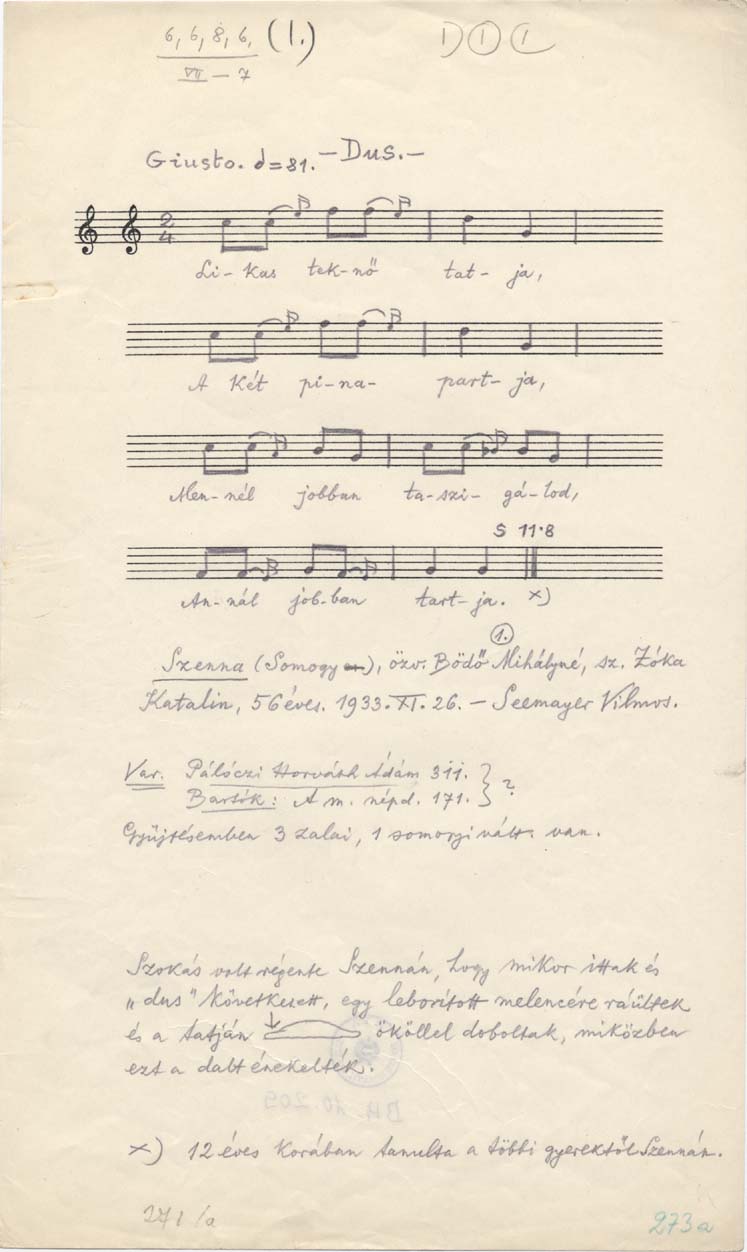 6, 6, 8, 6. (1.)
VII – 7
Giusto. d=81. – Dus. –
2
4
Li- kas tek-nő tat- ja,
A két pi-na- part- ja,
Men-nél jobban ta-szi- gá-lod,
S 11·8
An-nál job-ban tart-ja. x)
1.
Szenna (Somogy), özv. Bödő Mihályné, sz. Zóka
Katalin, 56 éves. 1933. XI. 26. – Seemayer Vilmos.
Var. Pálóczi Horváth Ádám 311. } ?
Bartók: A m. népd. 171.
Gyűjtésemben 3 zalai, 1 somogyi vált. van.
Szokás volt régente Szennán, hogy mikor ittak és
„dus" következett, egy leborított melencére ráültek
és a tatján ököllel doboltak, miközben
ezt a dalt énekelték.
BH 10.209
x) 12 éves korában tanulta a többi gyerektől Szennán.
271/a
273a